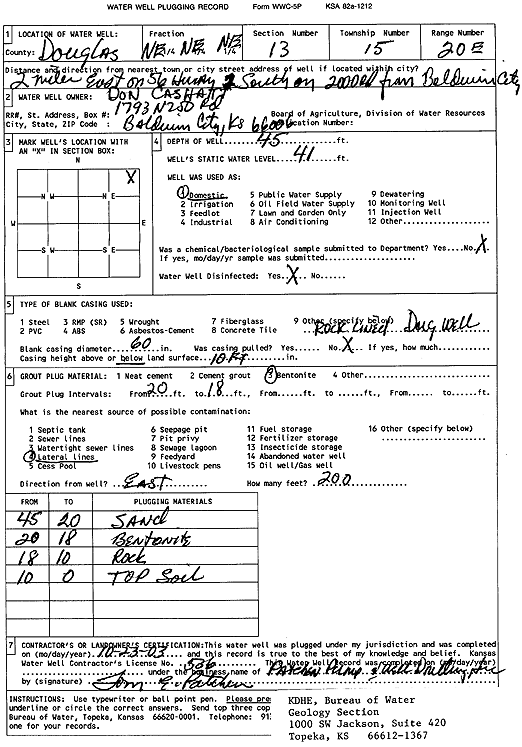 WATER WELL PLUGGING RECORD Form WWC-5P KSA 82a-1212
1 LOCATION OF WATER WELL: Fraction Section Number Township Number Range Number
County: Douglas NE 1/4 NE 1/4 NE 1/4 13 15 20 E
Distance and direction from nearest town or city street address of well if located within city?
2 miles East on 56 Hiway 2 South on 200 Rd from Baldwin City
2 WATER WELL OWNER: DON CASHATT
RR#, St. Address, Box #: 1793 N 250 Rd Board of Agriculture, Division of Water Resources
City, State, ZIP Code : Baldwin City, Ks 66006 Application Number:
3 MARK WELL'S LOCATION WITH AN "X" IN SECTION BOX:
N
X
N W N E
W E
S W S E
S
4 DEPTH OF WELL.....45......ft.
WELL'S STATIC WATER LEVEL...41...ft.
WELL WAS USED AS:
1 Domestic 5 Public Water Supply 9 Dewatering
2 Irrigation 6 Oil Field Water Supply 10 Monitoring Well
3 Feedlot 7 Lawn and Garden Only 11 Injection Well
4 Industrial 8 Air Conditioning 12 Other..............
Was a chemical/bacteriological sample submitted to Department? Yes....No.X
If yes, mo/day/yr sample was submitted..................
Water Well Disinfected: Yes..X.. No......
5 TYPE OF BLANK CASING USED:
1 Steel 3 RMP (SR) 5 Wrought 7 Fiberglass 9 Other (specify below)
2 PVC 4 ABS 6 Asbestos-Cement 8 Concrete Tile Rock Lined Dug Well
Blank casing diameter...60....in. Was casing pulled? Yes..... No.X.. If yes, how much...........
Casing height above or below land surface...10 Ft....in.
6 GROUT PLUG MATERIAL: 1 Neat cement 2 Cement grout 3 Bentonite 4 Other..............
Grout Plug Intervals: From 20 ..ft. to 18 ..ft., From.....ft. to .....ft., From..... to.....ft.
What is the nearest source of possible contamination:
1 Septic tank 6 Seepage pit 11 Fuel storage 16 Other (specify below)
2 Sewer lines 7 Pit privy 12 Fertilizer storage
3 Watertight sewer lines 8 Sewage lagoon 13 Insecticide storage
4 Lateral lines 9 Feedyard 14 Abandoned water well
5 Cess Pool 10 Livestock pens 15 Oil well/Gas well
Direction from well? ..EAST.. How many feet? .200.......
FROM TO PLUGGING MATERIALS
45 20 SAND
20 18 BENTONITE
18 10 Rock
10 0 TOP Soil
7 CONTRACTOR'S OR LANDOWNER'S CERTIFICATION: This water well was plugged under my jurisdiction and was completed
on (mo/day/year) 10-23-03 .... and this record is true to the best of my knowledge and belief. Kansas
Water Well Contractor's License No. 536 ....... This Water Well Record was completed on (mo/day/year)
............ under the business name of Patchen Pump & Well Drilling, Inc
by (signature) Tom E. Patchen
INSTRUCTIONS: Use typewriter or ball point pen. Please pre
underline or circle the correct answers. Send top three cop
Bureau of Water, Topeka, Kansas 66620-0001. Telephone: 91
one for your records.
KDHE, Bureau of Water
Geology Section
1000 SW Jackson, Suite 420
Topeka, KS 66612-1367